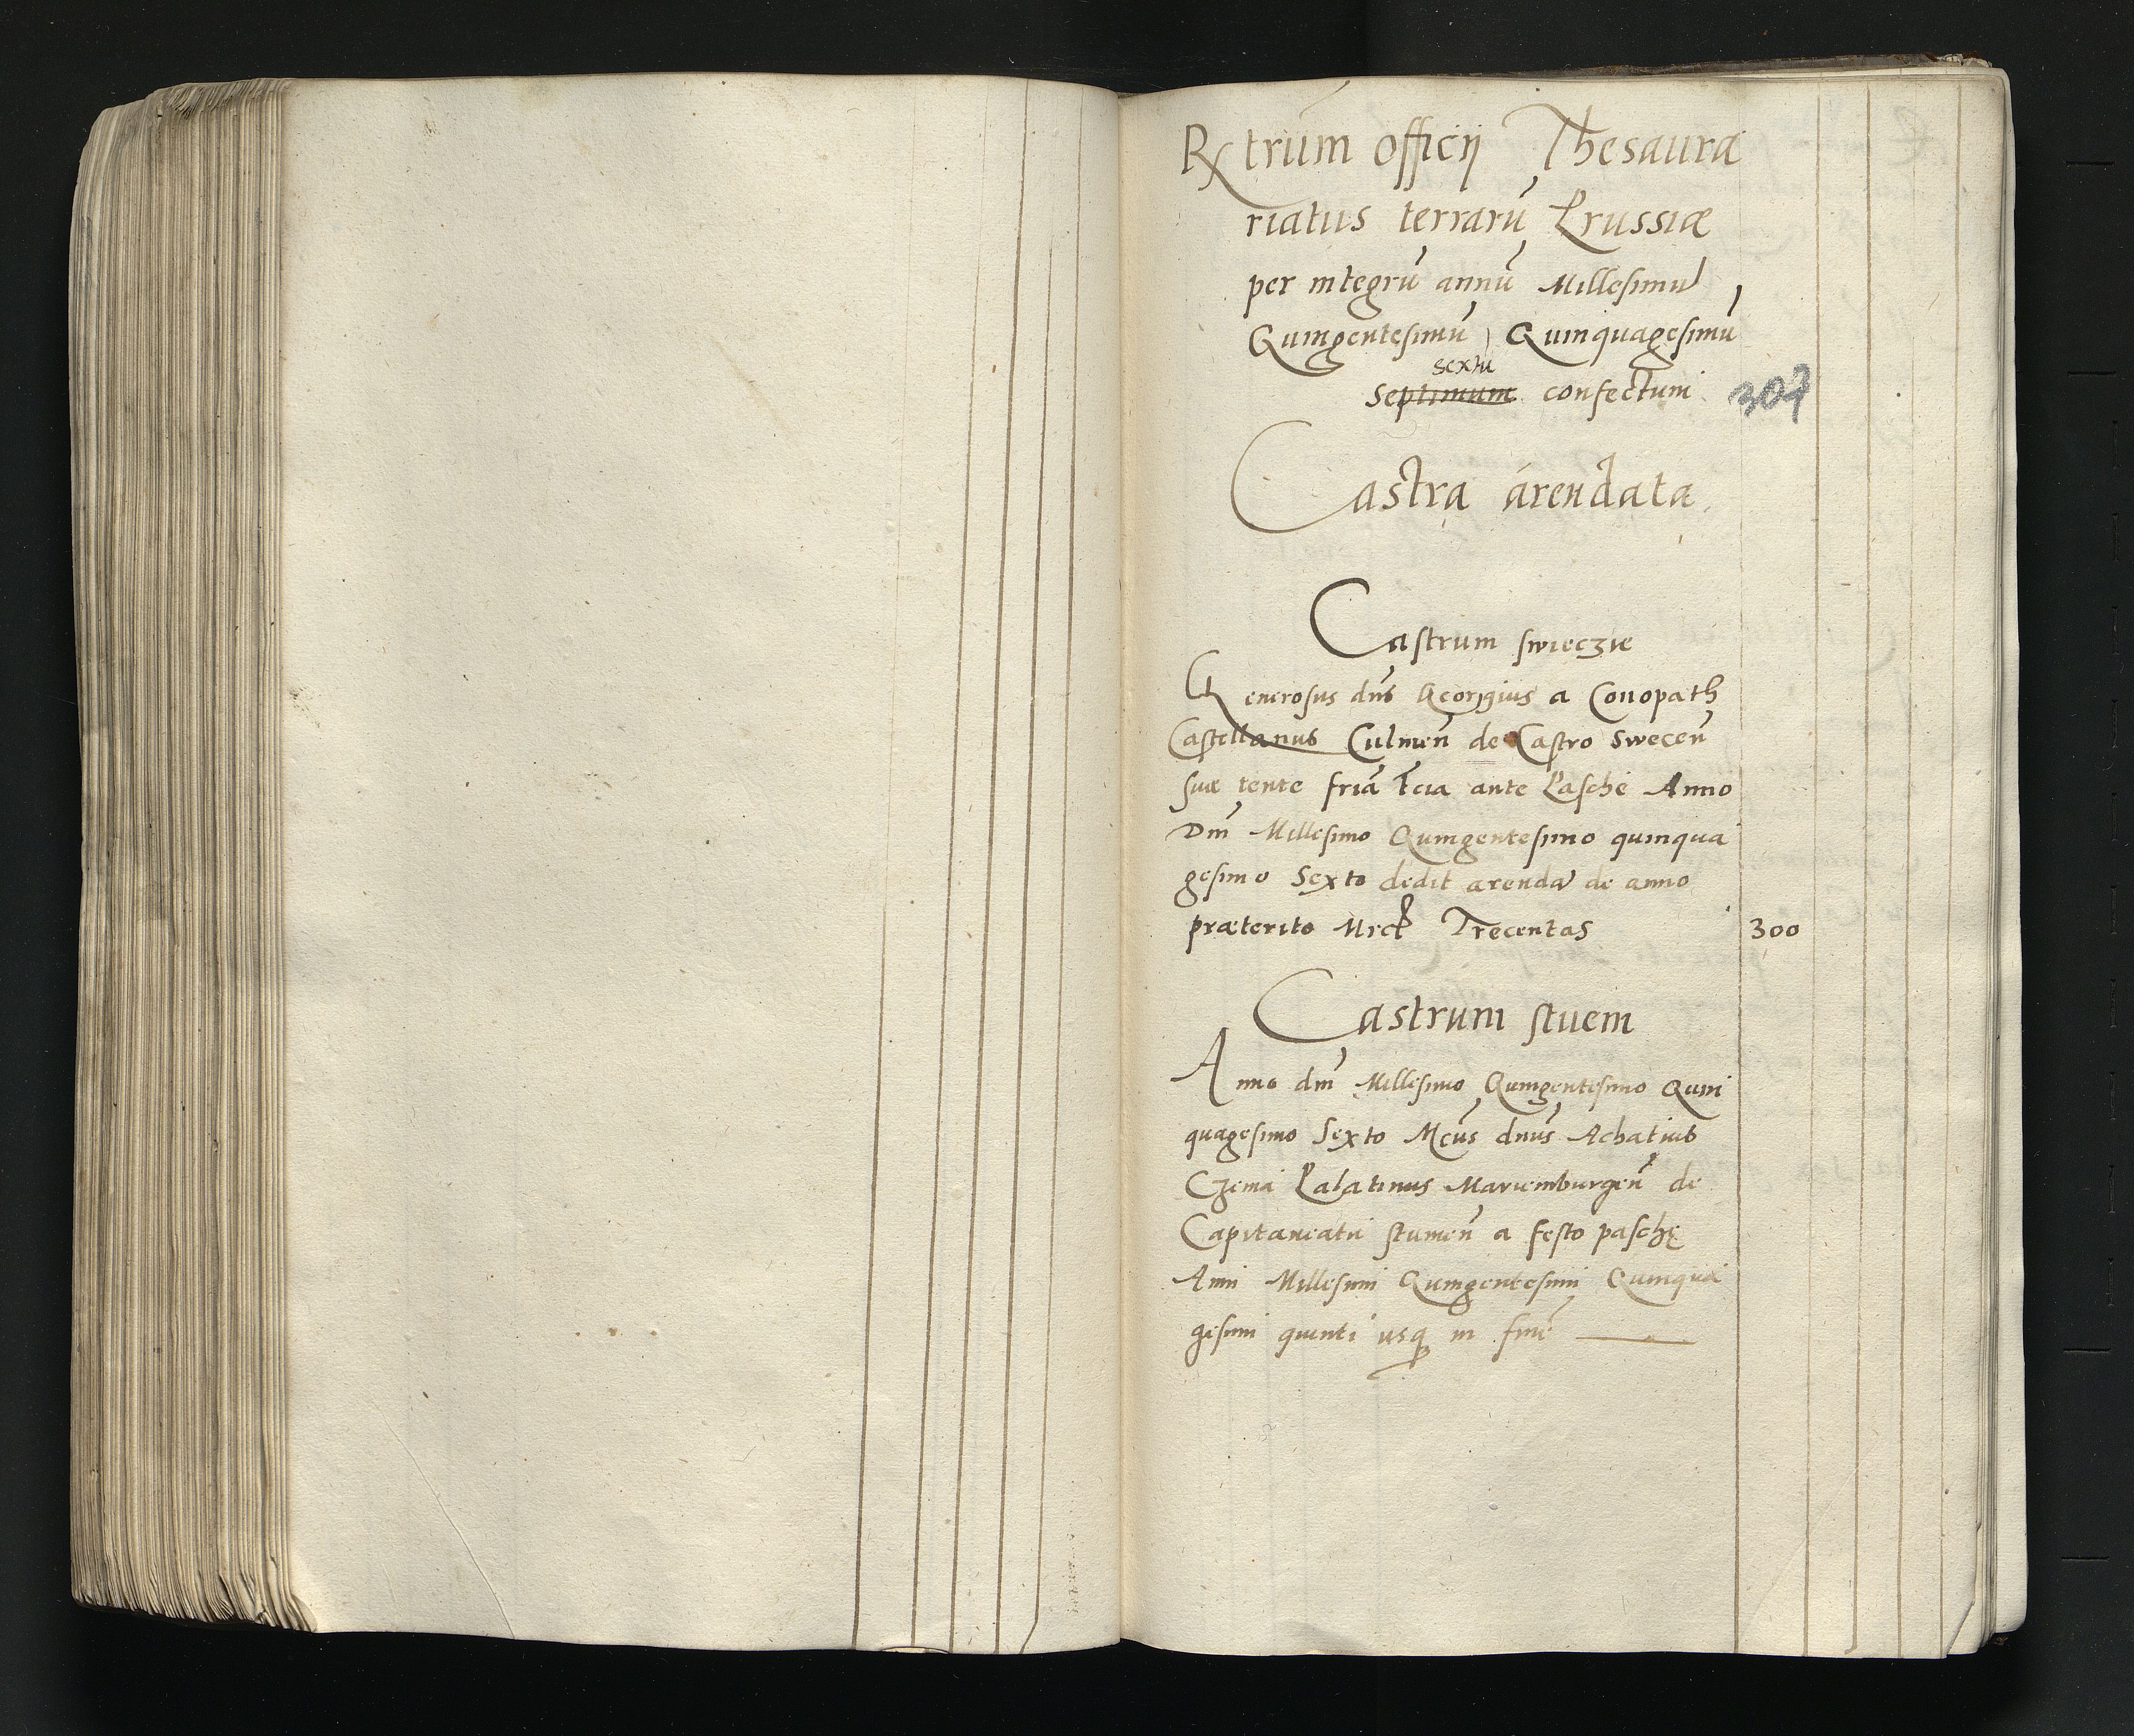 Rxtrum officij Thesaura
riatus terrarū Prussiæ
per integrū annū Millesimū
Quingentesimū Quinquagesimū
sextū
Septimum confectum 307
Castra arendata
Castrum swieczie
Generosus dn̄s Georgius a Conopath
Castellanus Culmen̄ de Castro Swecen̄
suæ tente fria t̄cia ante Pasche Anno
Dn̄i Millesimo Quingentesimo quinqua
gesimo Sexto dedit arendā de anno
præterito Mrcħ Trecentas 300
Castrum stuem
Anno dn̄i Millesimo Quingentesimo Quin
quagesimo Sexto Mcūs dnūs Achatius
Czema Palatinus Mariemburgen̄ de
Capitaneatu stumen̄ a festo paschę
Anni Millesimi Quingentesimi Quinqua
gesimi quinti usq̨ in finē